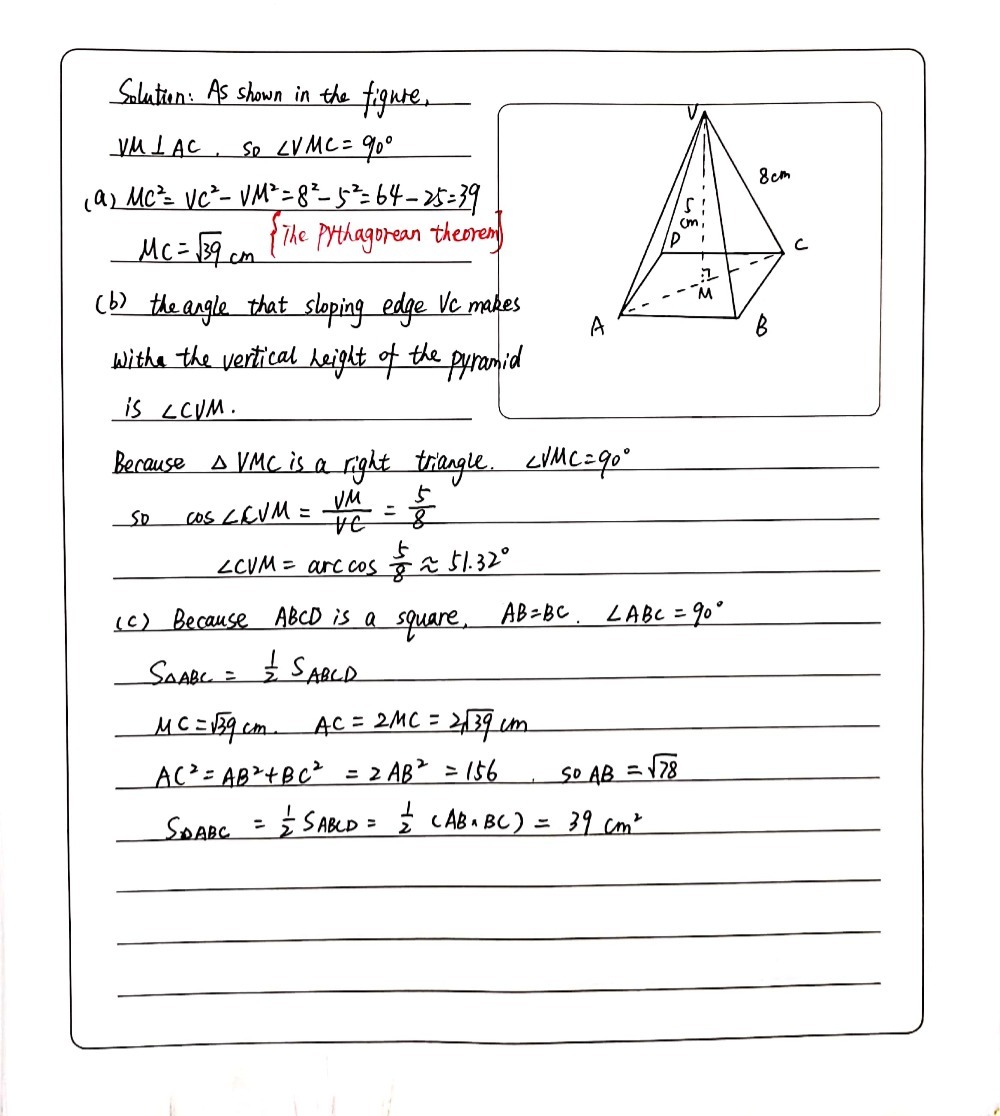 Solution: As shown in the figure,
VM⊥AC. so ∠VMC=90°
(a) MC²=VC²-VM²=8²-5²=64-25=39
MC=√39 cm {The Pythagorean theorem}
(b) the angle that sloping edge VC makes
witha the vertical height of the pyramid
is ∠CVM.
V
8cm
5
cm
D
C
M
A
B
Because △VMC is a right triangle. ∠VMC=90°
so cos∠CVM = VM/VC = 5/8
∠CVM = arccos 5/8 ≈ 51.32°
(c) Because ABCD is a square, AB=BC. ∠ABC=90°
S△ABC = 1/2 SABCD
MC=√39 cm. AC = 2MC = 2√39 cm
AC²=AB²+BC² = 2AB² = 156. so AB = √78
S△ABC = 1/2 SABCD = 1/2 (AB×BC) = 39 cm²